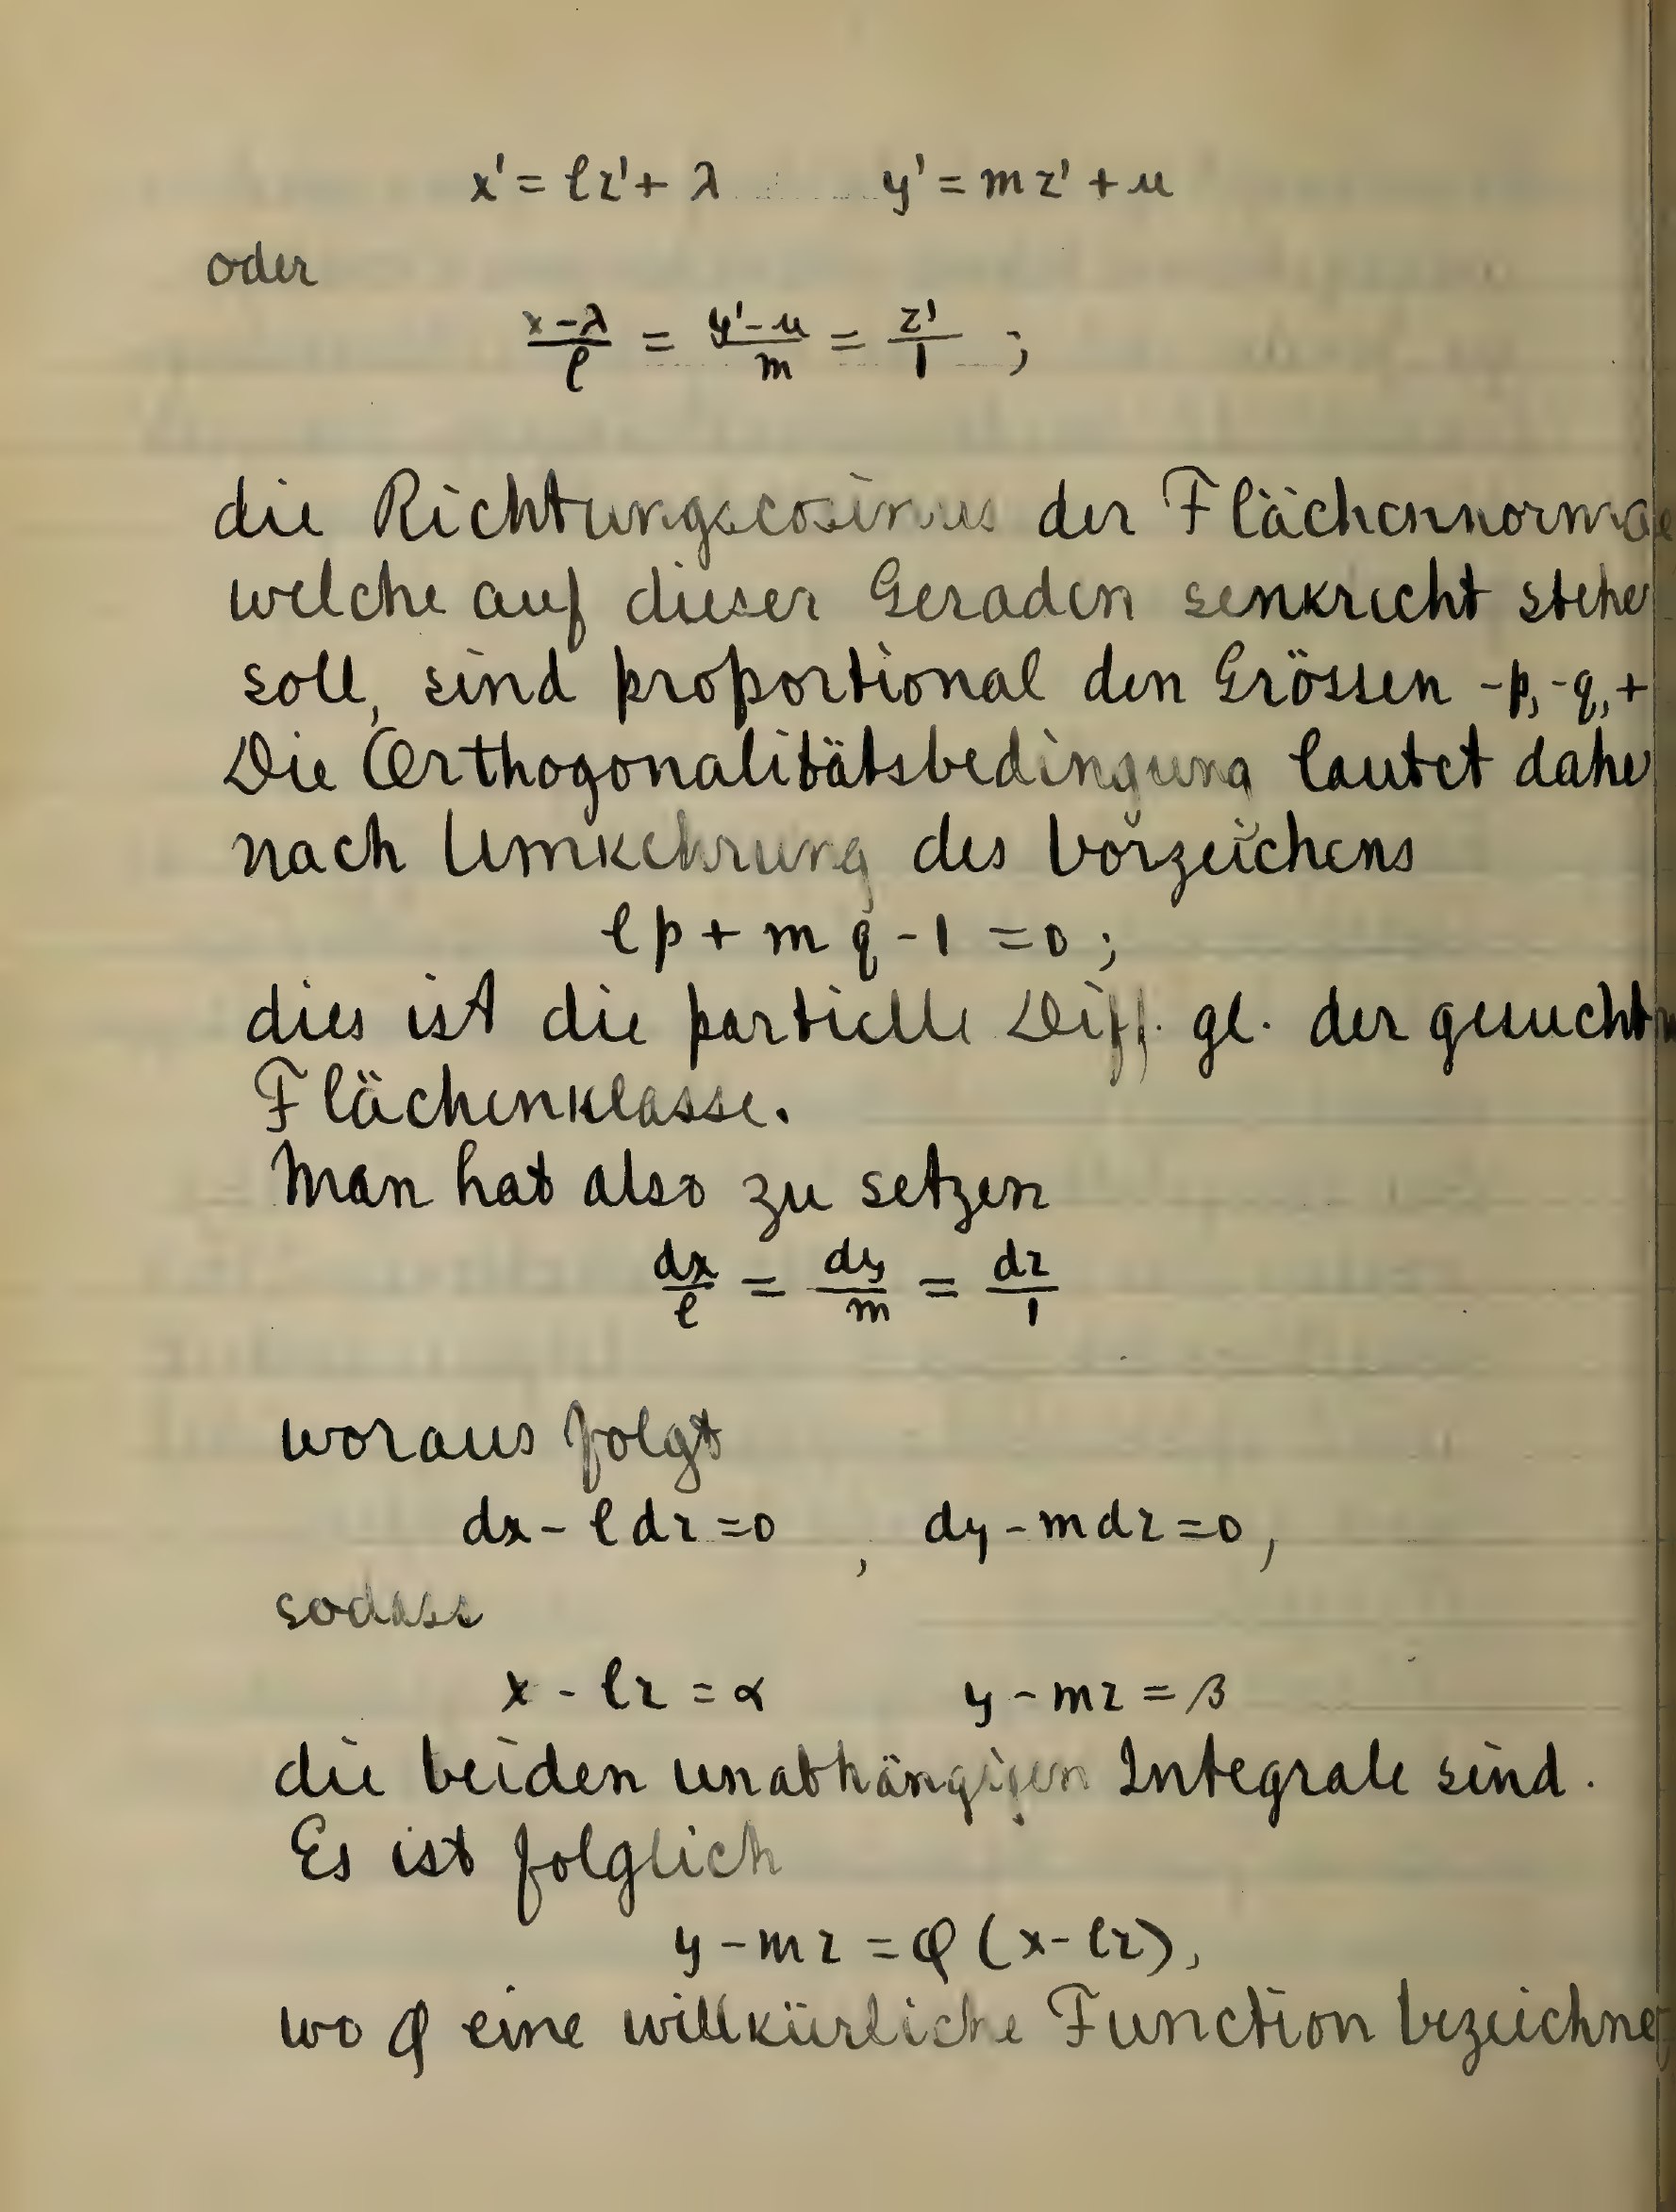 x' = lz' + λ y' = mz' + μ
oder
(x-λ)/l = (y'-μ)/m = z'/1 ;
die Richtungscosinus der Flächennormale
welche auf dieser Geraden senkrecht stehe
soll, sind proportional den Grössen -p, -q, +
Die Orthogonalitätsbedingung lautet dahe
nach Umkehrung des Vorzeichens
lp + mq - 1 = 0 ;
dies ist die partielle Diff. gl. der gesuchten
Flächenklasse.
Man hat also zu setzen
dx/l = dy/m = dz/1
woraus folgt
dx - l dz = 0 , dy - m dz = 0 ,
sodass
x - lz = α y - mz = β
die beiden unabhängigen Integrale sind.
Es ist folglich
y - mz = φ (x - lz),
wo φ eine willkürliche Function bezeichne